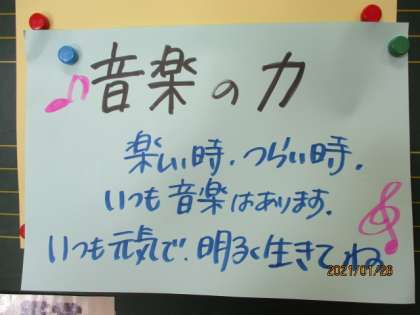 音楽の力
楽しい時．つらい時．
いつも音楽はあります．
いつも元気で．明るく生きてね
2021/01/28